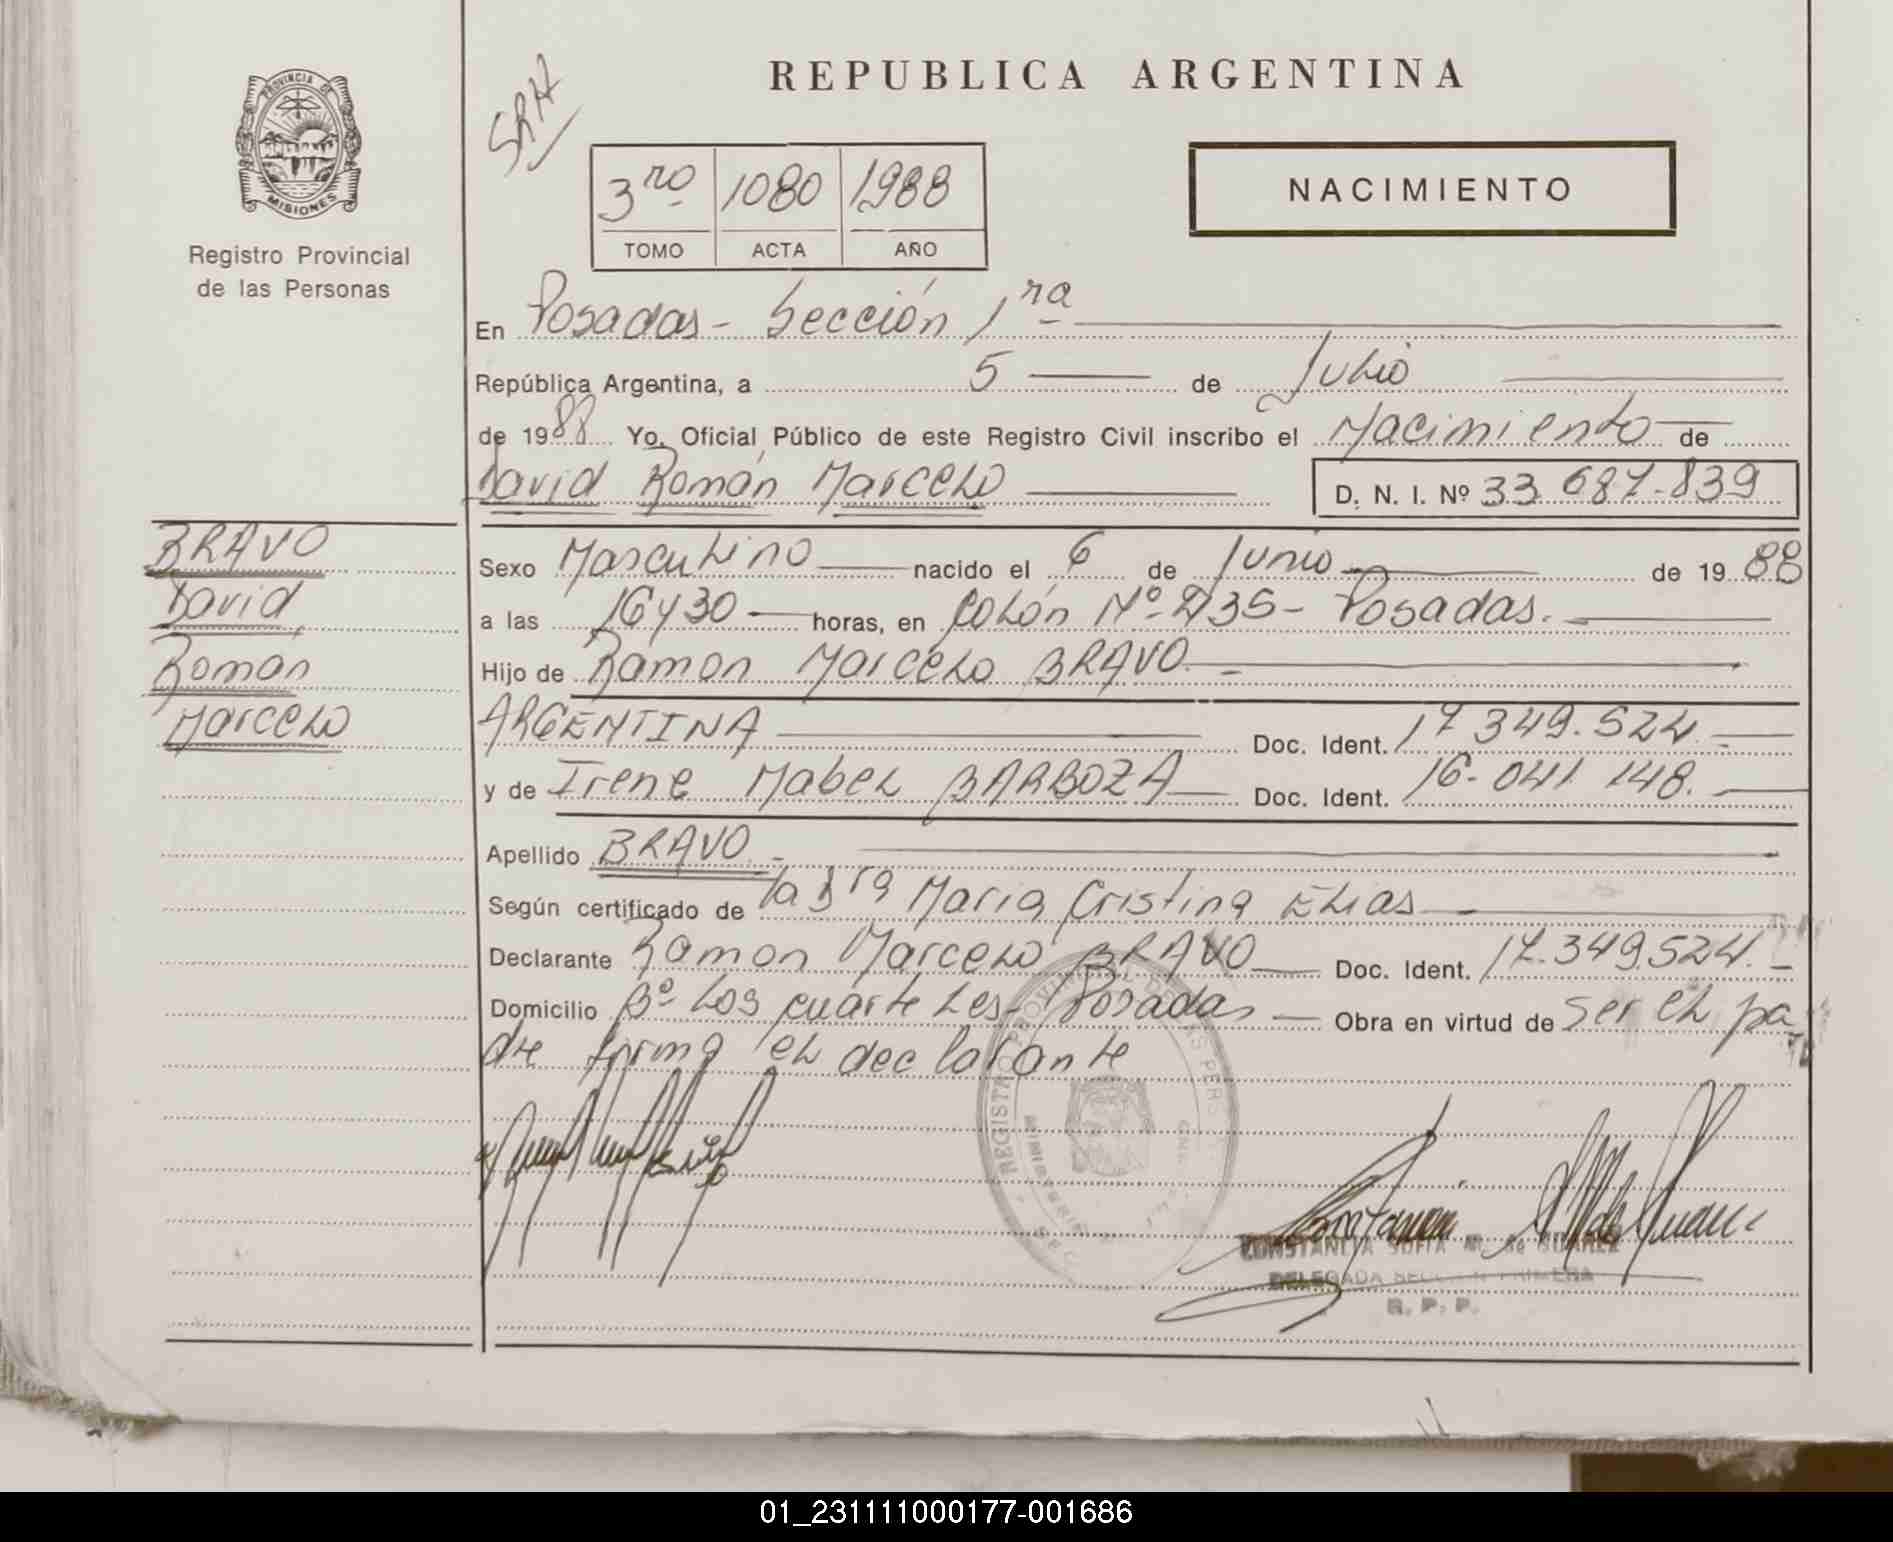 REPUBLICA ARGENTINA
SRH
PROVINCIA DE
MISIONES
Registro Provincial
de las Personas
3ro 1080 1988
TOMO ACTA AÑO
NACIMIENTO
En Posadas - Sección 1ra
República Argentina, a 5 de Julio
de 1988 Yo, Oficial Público de este Registro Civil inscribo el Nacimiento de
David Román Marcelo D. N. I. Nº 33.687.839
BRAVO
David
Roman
Marcelo
Sexo Masculino nacido el 6 de Junio de 1988
a las 16 y 30 horas, en Colón Nº 2135 - Posadas.
Hijo de Ramon Marcelo BRAVO
ARGENTINA Doc. Ident. 17.349.524
y de Irene Mabel BARBOZA Doc. Ident. 16.041.148.
Apellido BRAVO
Según certificado de la Dra Maria Cristina Elias
Declarante Ramon Marcelo BRAVO Doc. Ident. 17.349.524.
Domicilio Bº Los cuarteles - Posadas Obra en virtud de ser el pa
dre firma el declarante
CONSTANCIA SOFIA M. de SUAREZ
DELEGADA SECCION PRIMERA
R. P. P.
01_231111000177-001686